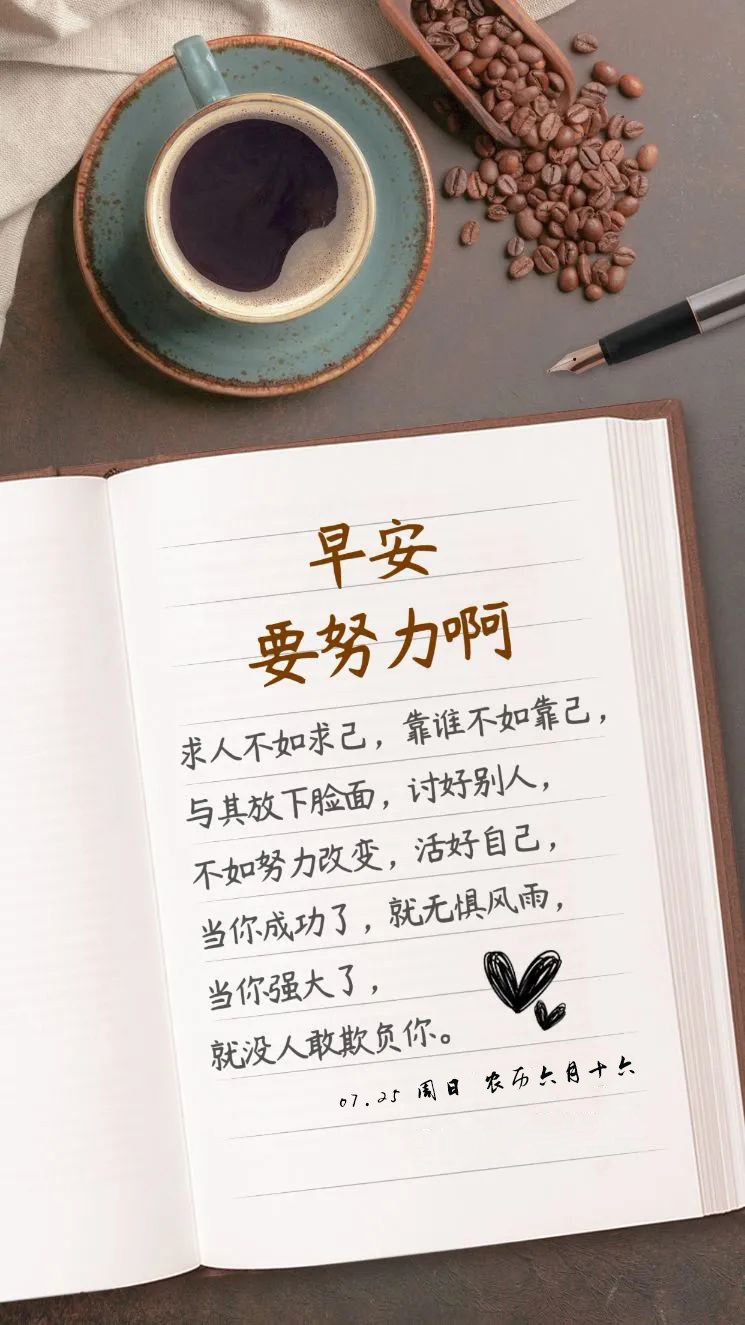 早安
要努力啊
求人不如求己，靠谁不如靠己，
与其放下脸面，讨好别人，
不如努力改变，活好自己，
当你成功了，就无惧风雨，
当你强大了，
就没人敢欺负你。
07.25 周日 农历六月十六